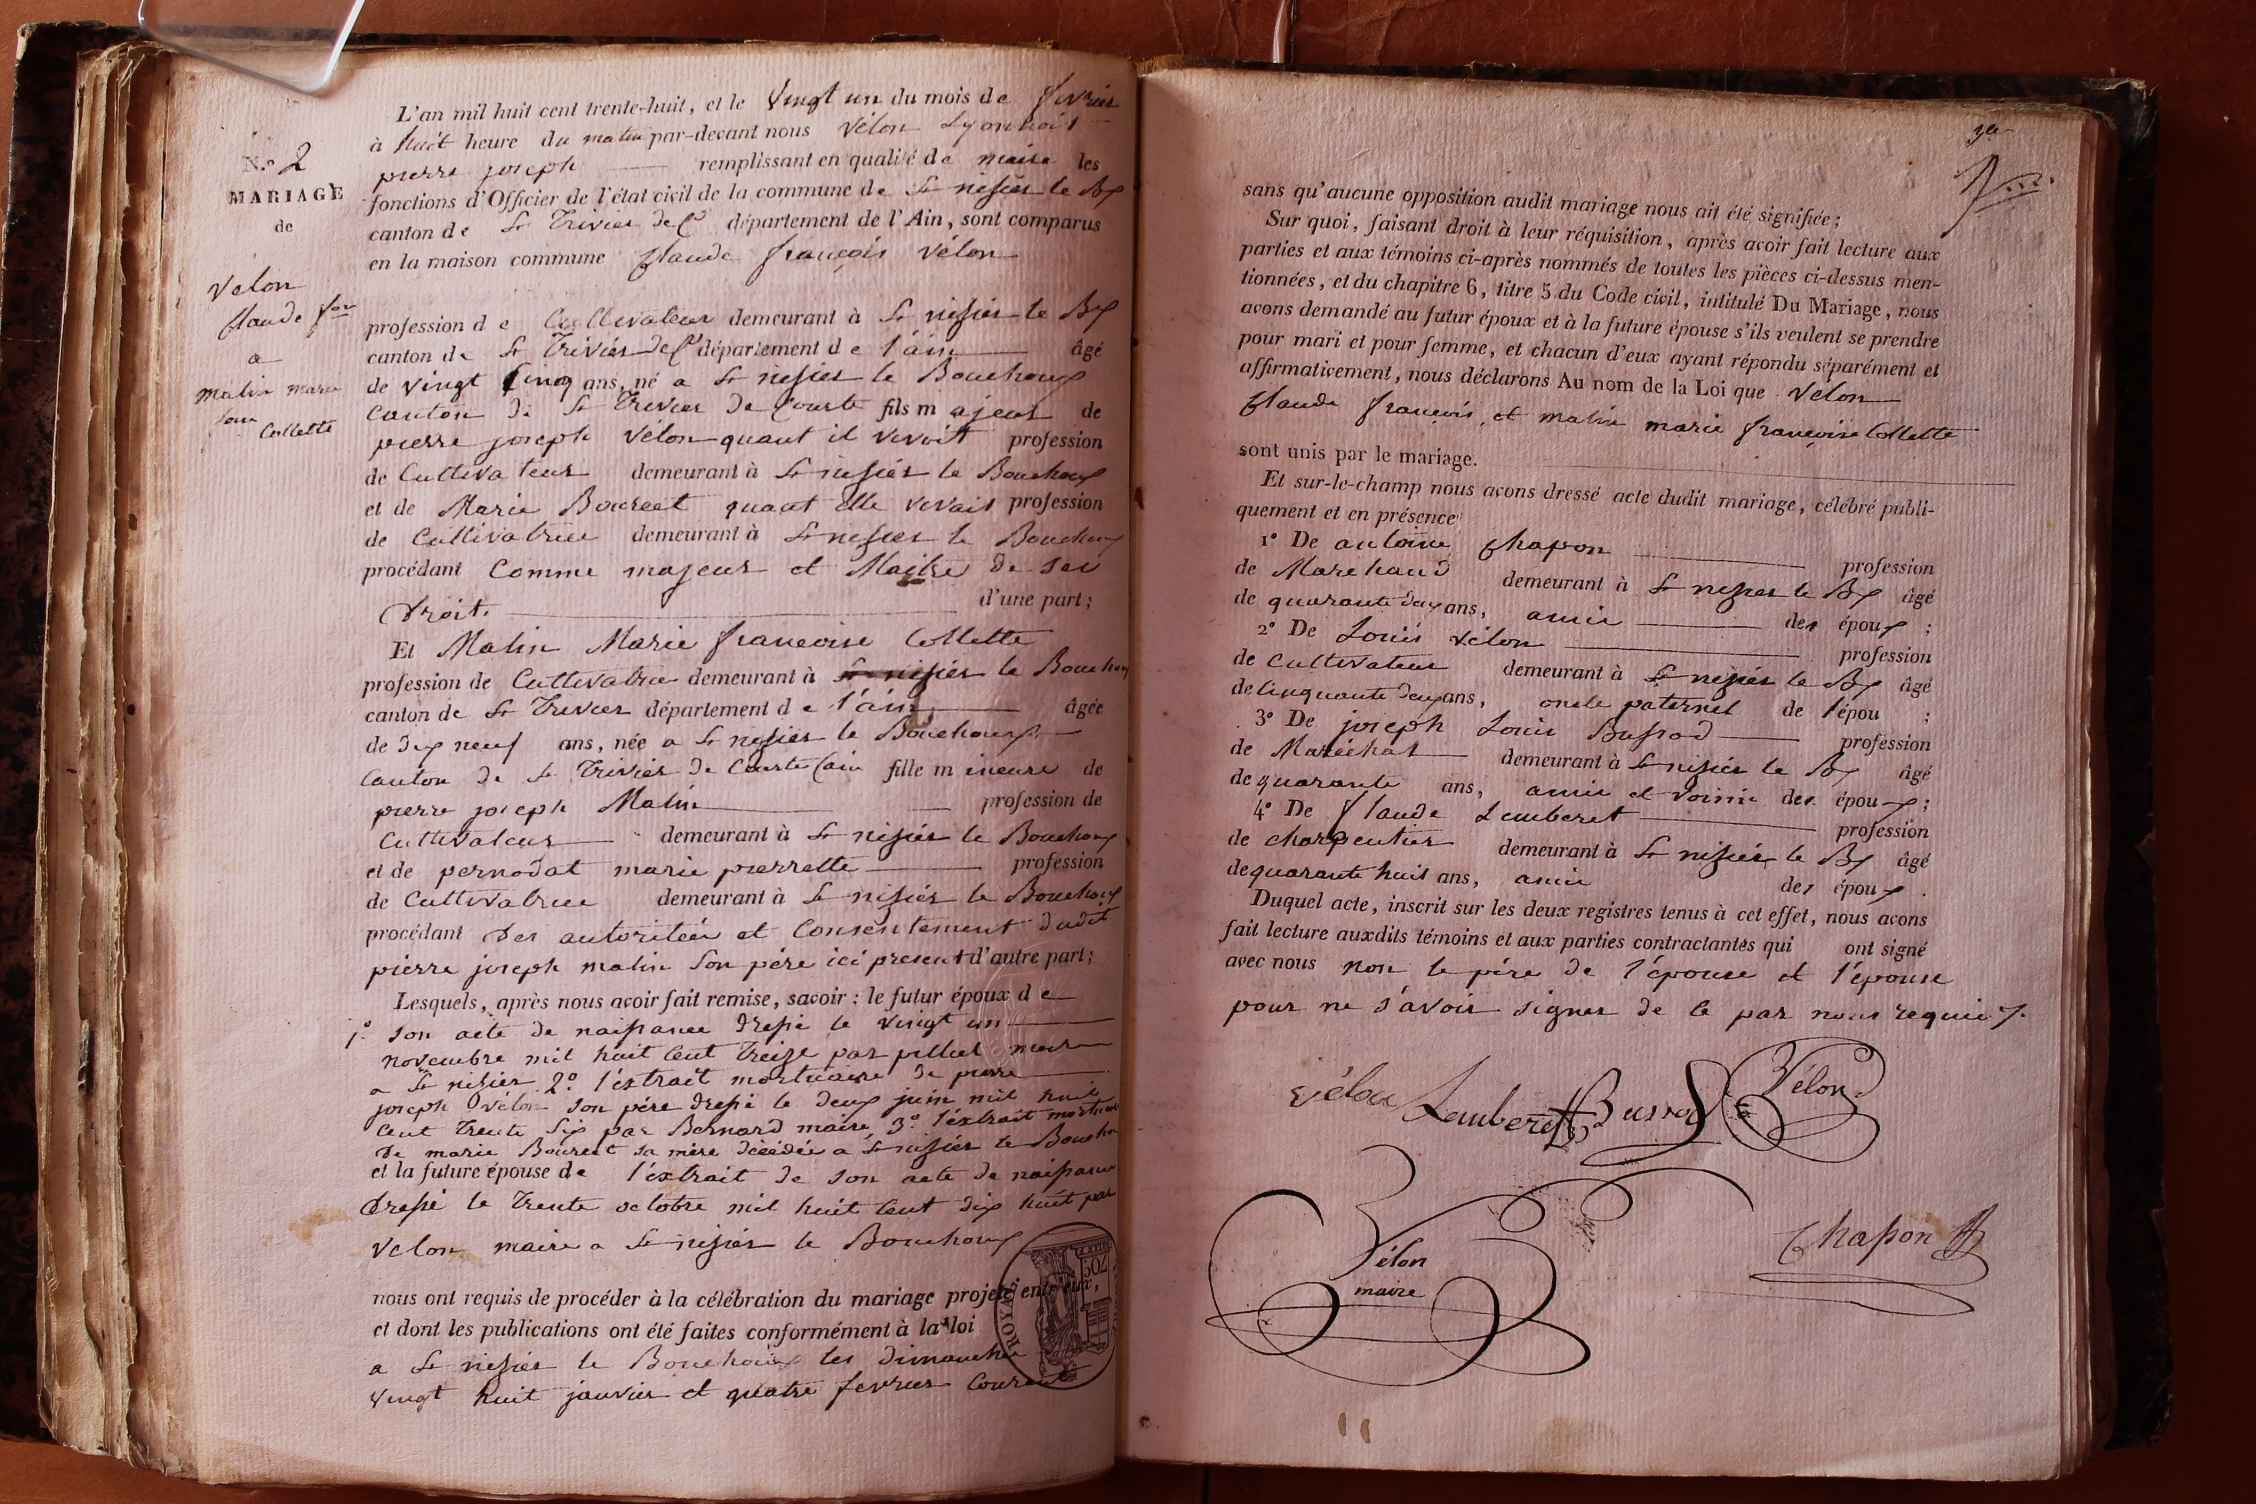 L'an mil huit cent trente-huit, et le vingt un du mois de fevrier
à huit heure du matin par-devant nous Vélon Lyonnois
pierre joseph remplissant en qualité de maire les
fonctions d'Officier de l'état civil de la commune de St nisier le Bx
canton de St Trivier de Cs département de l'Ain, sont comparus
en la maison commune Claude françois Vélon
N.° 2
MARIAGE
de
Velon
Claude fois
a
malin marie
Collette
profession de Cultivateur demeurant à St nisier le Bx
canton de St Trivier de Cs département de l'ain âgé
de vingt Cinq ans, né a St nisier le Bouchoux
Canton de St Trivier de Courte fils majeur de
pierre joseph Vélon quant il vivoit profession
de Cultivateur demeurant à St nisier le Bouchoux
et de Marie Boureat quant elle vivait profession
de Cultivatrice demeurant à St nisier le Bouchoux
procédant Comme majeur et Maitre de ses
Droit. d'une part;
Et Malin Marie françoise Collette
profession de Cultivatrice demeurant à St nisier le Bouchoux
canton de St Trivier département de l'ain âgée
de dix neuf ans, née a St nisier le Bouchoux
Canton de St Trivier de Courte (ain fille mineure de
pierre joseph Malin profession de
Cultivateur demeurant à St nisier le Bouchoux
et de pernodat marie pierrette profession
de Cultivatrice demeurant à St nisier le Bouchoux
procédant Des autoritée et Consentement dudit
pierre joseph malin Son pére ici present d'autre part;
Lesquels, après nous avoir fait remise, savoir: le futur époux de
1° son acte de naissance dressé le vingt un
novembre mil huit Cent Treize par maire
a St nisier 2° l'éxtrait mortuaire de pierre
joseph Vélon son pére dressé le deux juin mil huit
Cent Trente Six par Bernard maire 3° l'éxtrait mortuaire
de marie Boureat sa mére décédée a St nisier le Bouchoux
et la future épouse de l'éxtrait de son acte de naissance
dressé le Trente octobre mil huit Cent dix huit par
Velon maire a St nisier le Bouchoux
nous ont requis de procéder à la célébration du mariage projeté entre eux,
et dont les publications ont été faites conformément à la loi
a St nisier le Bouchoux les dimanche
vingt huit janvier et quatre fevrier Courant
sans qu'aucune opposition audit mariage nous ait été signifiée;
Sur quoi, faisant droit à leur réquisition, après avoir fait lecture aux
parties et aux témoins ci-après nommés de toutes les pièces ci-dessus men-
tionnées, et du chapitre 6, titre 5 du Code civil, intitulé Du Mariage, nous
avons demandé au futur époux et à la future épouse s'ils veulent se prendre
pour mari et pour femme, et chacun d'eux ayant répondu séparément et
affirmativement, nous déclarons Au nom de la Loi que Velon
Claude françois, et malin marie françoise Collette
sont unis par le mariage.
Et sur-le-champ nous avons dressé acte dudit mariage, célébré publi-
quement et en présence
1° De antoine Chapon profession
de Marchand demeurant à St nisier le Bx âgé
de quarante deux ans, amie des époux;
2° De Louis Vélon profession
de cultivateur demeurant à St nisier le Bx âgé
de Cinquante deux ans, oncle paternel de l'épou;
3° De joseph Louis Bussod profession
de Maréchal demeurant à St nisier le Bx âgé
de quarante ans, amie et voisin des époux;
4° De Claude Lemberet profession
de charpentier demeurant à St nisier le Bx âgé
de quarante huit ans, amie des époux.
Duquel acte, inscrit sur les deux registres tenus à cet effet, nous avons
fait lecture auxdits témoins et aux parties contractantes qui ont signé
avec nous non le pére de l'épouse et l'épouse
pour ne s'avoir signer de ce par nous requis.
vélon Lemberet Bussod Vélon
Vélon
maire
Chapon